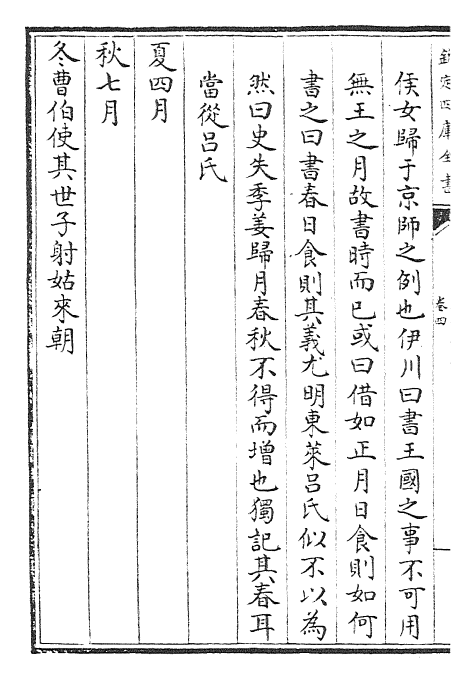 欽定四庫全書
卷四
侯女歸于京師之例也伊川曰書王國之事不可用
無王之月故書時而已或曰借如正月日食則如何
書之曰書春日食則其義尤明東萊呂氏似不以為
然曰史失季姜歸月春秋不得而增也獨記其春耳
當從呂氏
夏四月
秋七月
冬曹伯使其世子射姑來朝